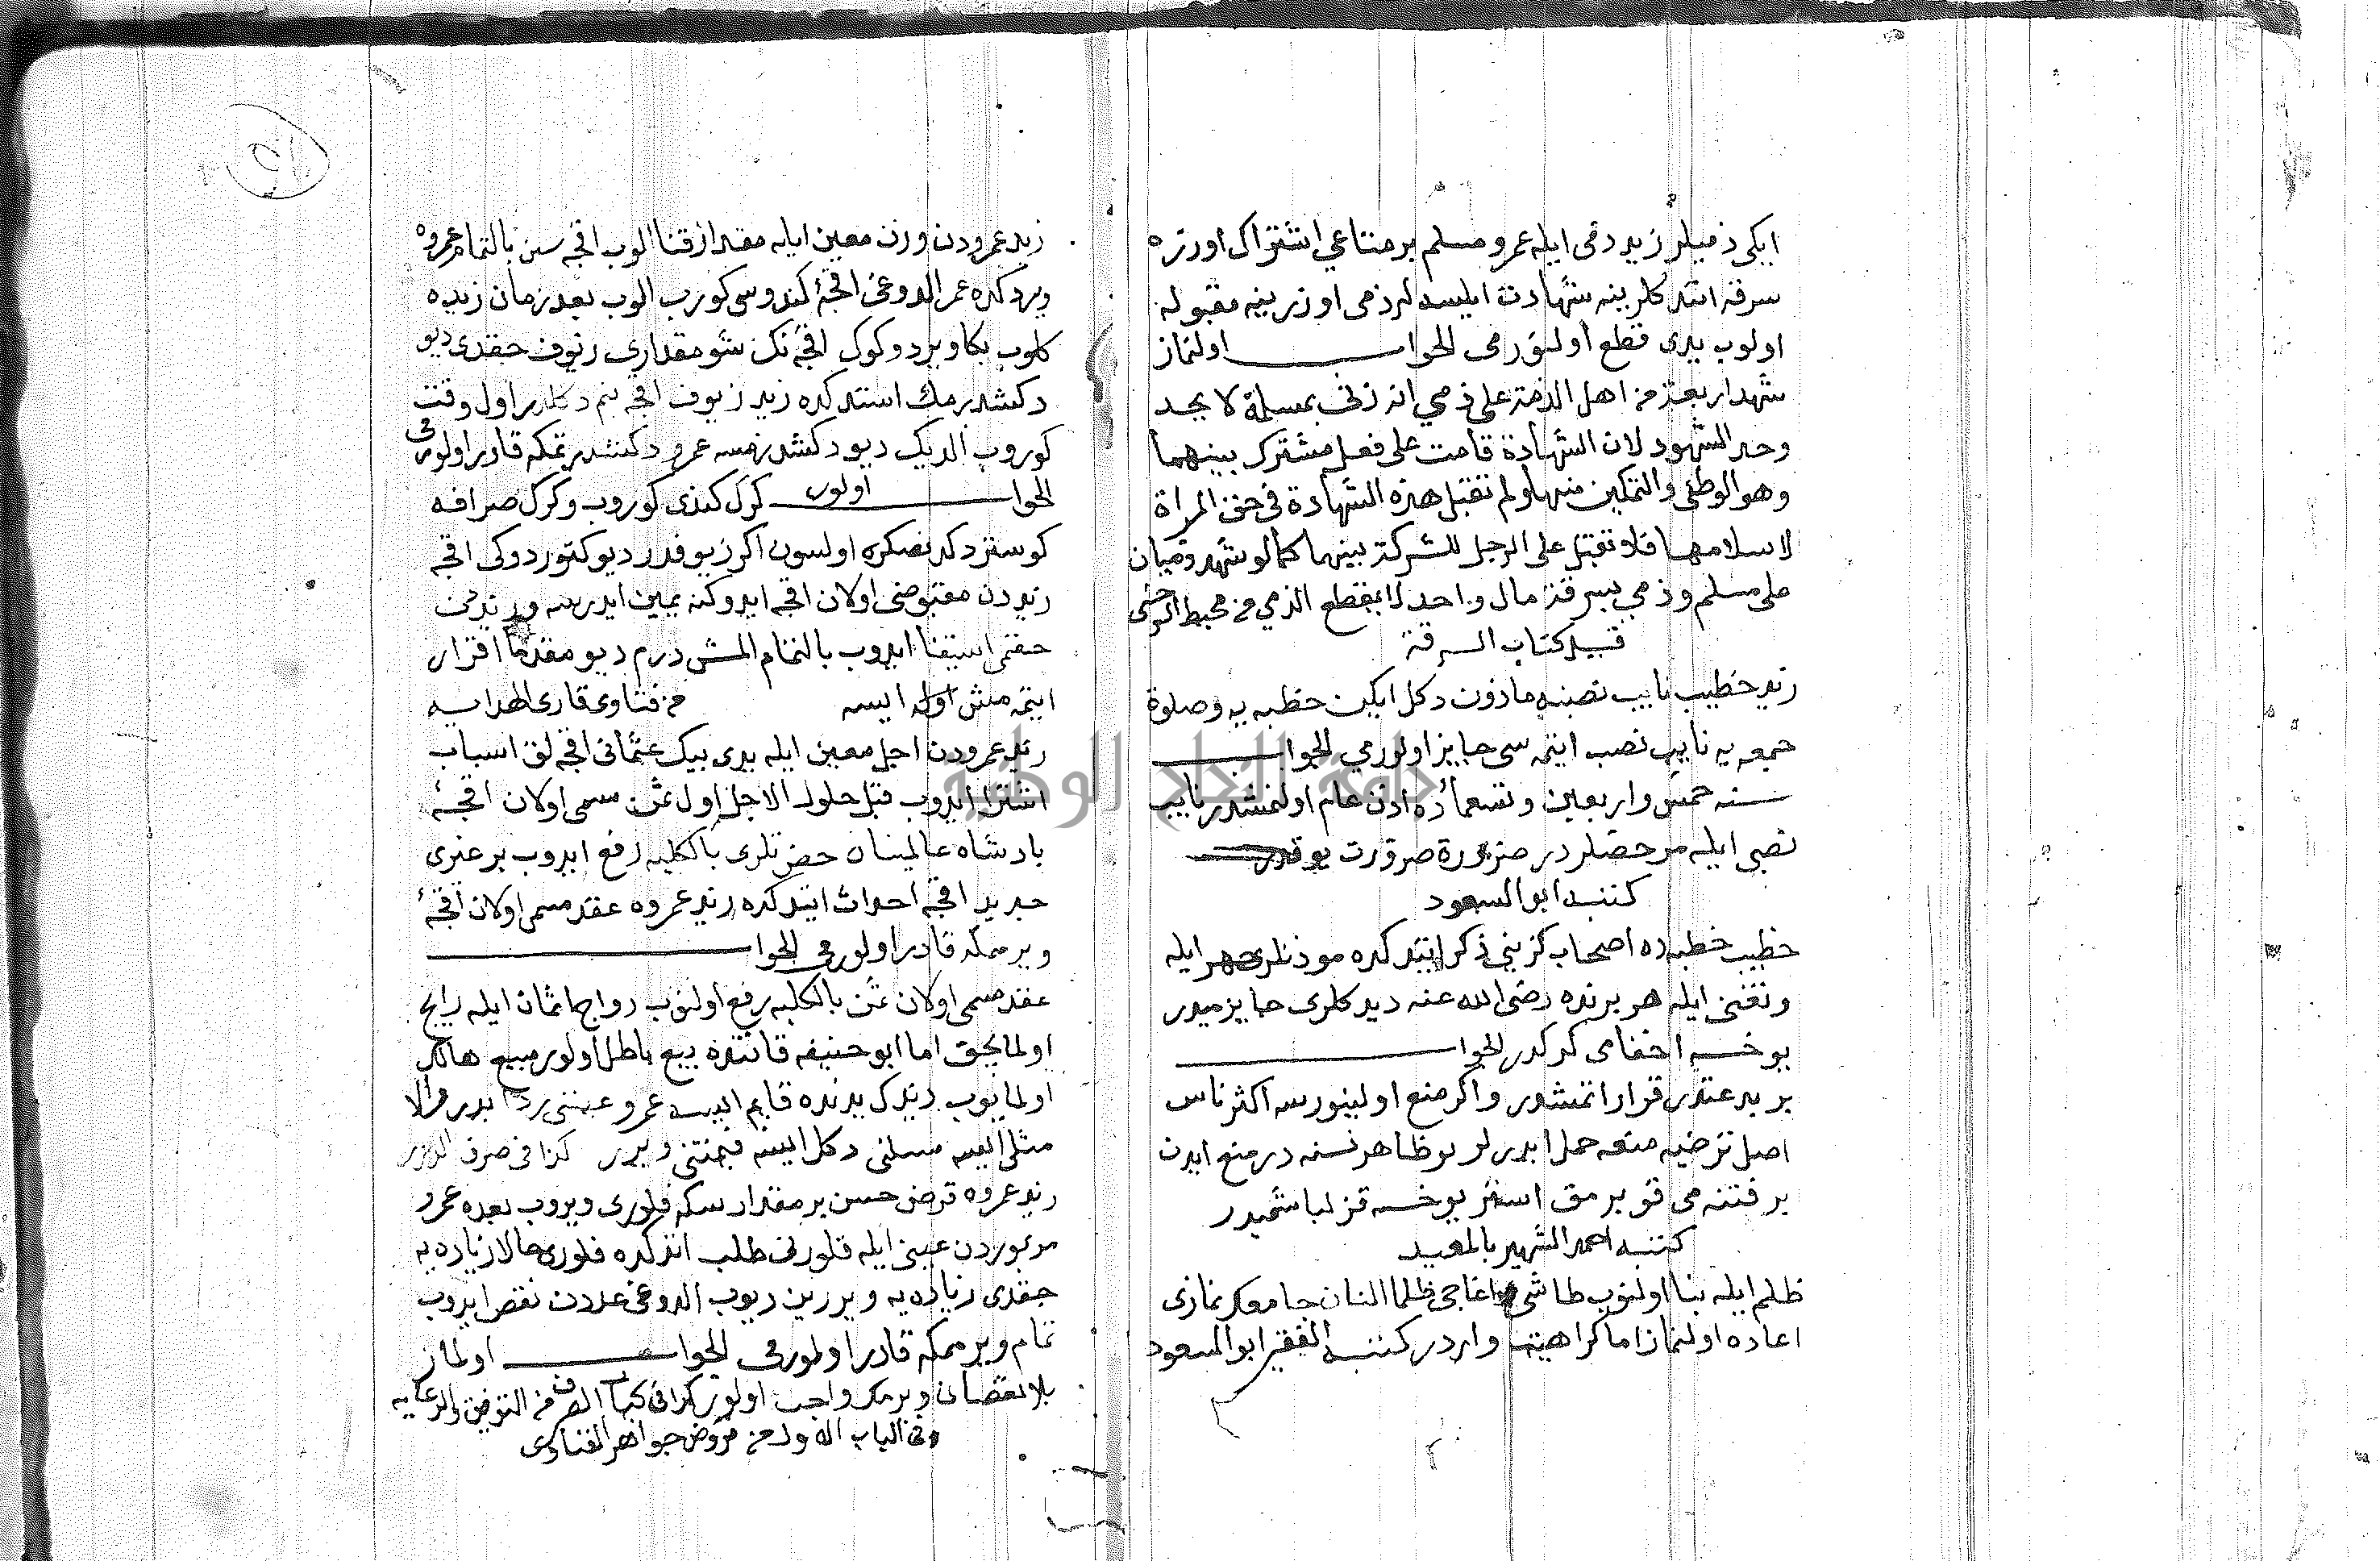 ایکی ذمیلر زید ذمی ایله عمرو مسلم بر متاعی اشتراک اوزره
سرقه اتدکلرینه شهادت ایلسه لر ذمی اوزرینه مقبوله
اولوب یدی قطع اولنورمی الجواب اولنماز
شهد اربعة من اهل الذمة علی ذمی انه زنی بمسلمة لا یحد
وحد الشهود لان الشهادة قامت علی فعل مشترک بینهما
وهو الوطئ والتمکین منها ولم تقبل هذه الشهادة فی حق المراة
لاسلامها فلا تقبل علی الرجل للشرکة بینهما کما لو شهد ذمیان
علی مسلم وذمی بسرقة مال واحد لا یقطع الذمی من محیط السرخسی
قبیل کتاب السرقة
زید خطیب نایب نصبنه ماذون دکل ایکن خطبه یه وصلوة
جمعه یه نایب نصب ایتمه سی جایز اولورمی الجواب
سنه خمس واربعین وتسعمائه ده اذن عام اولنمشدر نایب
نصبی ایله مرخصلر در ضرورة صرورت یوقدر
کتبه ابو السعود
خطیب خطبه ده اصحاب کزینی ذکر ایتدکده موذنلر جهر ایله
وتغنی ایله هر برنده رضی الله عنه دیدکلری جایزمیدر
یوخسه اخفامی کرکدر الجواب
بر بدعتدر قرار اتمشدر واکر منع اولینورسه اکثر ناس
اصل ترضیه منعه حمل ایدرلر بو ظاهر نسنه در منع ایدن
بر فتنه می قوبرمق استر یوخسه قزلباشمیدر
کتبه احمد الشهیر بالمعید
ظلم ایله بنا اولنوب طاشی اغاجی ظلما النان جامعکر نمازی
اعاده اولنماز اما کراهیتی واردر کتبه الفقیر ابو السعود
زید عمرودن وزن معین ایله مقدار قنا الوب اقچه سن بالتمام عمروه
ویردکده عمرو الدوغی اقچه کندوسی کورب الوب بعد زمان زیده
کلوب بکا ویردوکوک اقچه نک شو مقداری زیوف چقدی دیو
دکشدیرمک استدکده زید زیوف اقچه بنم دکلدر اول وقت
کوروب الدیک دیو دکشدرمسه عمرو دکشدیرتمکه قادر اولورمی
الجواب اولور کرک کندی کوروب وکرک صرافه
کوستردکدنصکره اولسون اکر زیوفدر دیو کتوردوکی اقچه
زیددن مقبوضی اولان اقچه ایدوکنه یمین ایدرسه وزیددن
حقمی استیفا ایدوب بالتمام المشدرم دیو مقدما اقرار
ایتمه مش اوله ایسه من فتاوی قاری الهدایه
زید عمرودن اجل معین ایله یدی بیک عثمانی اقچه لق اسباب
اشترا ایدوب قبل حلول الاجل اول ثمن مسمی اولان اقچه
بادشاه عالمپناه حضرتلری بالکلیه رفع ایدوب بر غیری
جدید اقچه احداث ایتدکده زید عمروه عقد مسمی اولان اقچه
ویرمکه قادر اولورمی الجواب
عقد مسمی اولان ثمن بالکلیه رفع اولنوب رواج اثمان ایله رایج
اولمایجق اما ابو حنیفه قاتنده بیع باطل اولور مبیع هالک
اولمایوب زیدک یدنده قایم ایسه عمرو عینی رد ایدر والا
مثلی ایسه مثلنی دکل ایسه قیمتنی ویرر کذا فی صرف الدرر
زید عمروه قرض حسن بر مقدار سکه فلوری ویروب بعده عمرو
مزبوردن عینی ایله فلورین طلب اتدکده فلوری حالا زیاده یه
چقدی زیاده یه ویررین دیوب الدوغی عددن نقص ایدوب
تمام ویرممکه قادر اولورمی الجواب اولماز
بلا نقصان ویرمک واجب اولور کذا فی کتاب الصرف من التوفیق والرعایه
وفی الباب الاول من قروض جواهر الفتاوی
جامعة النجاح الوطنية